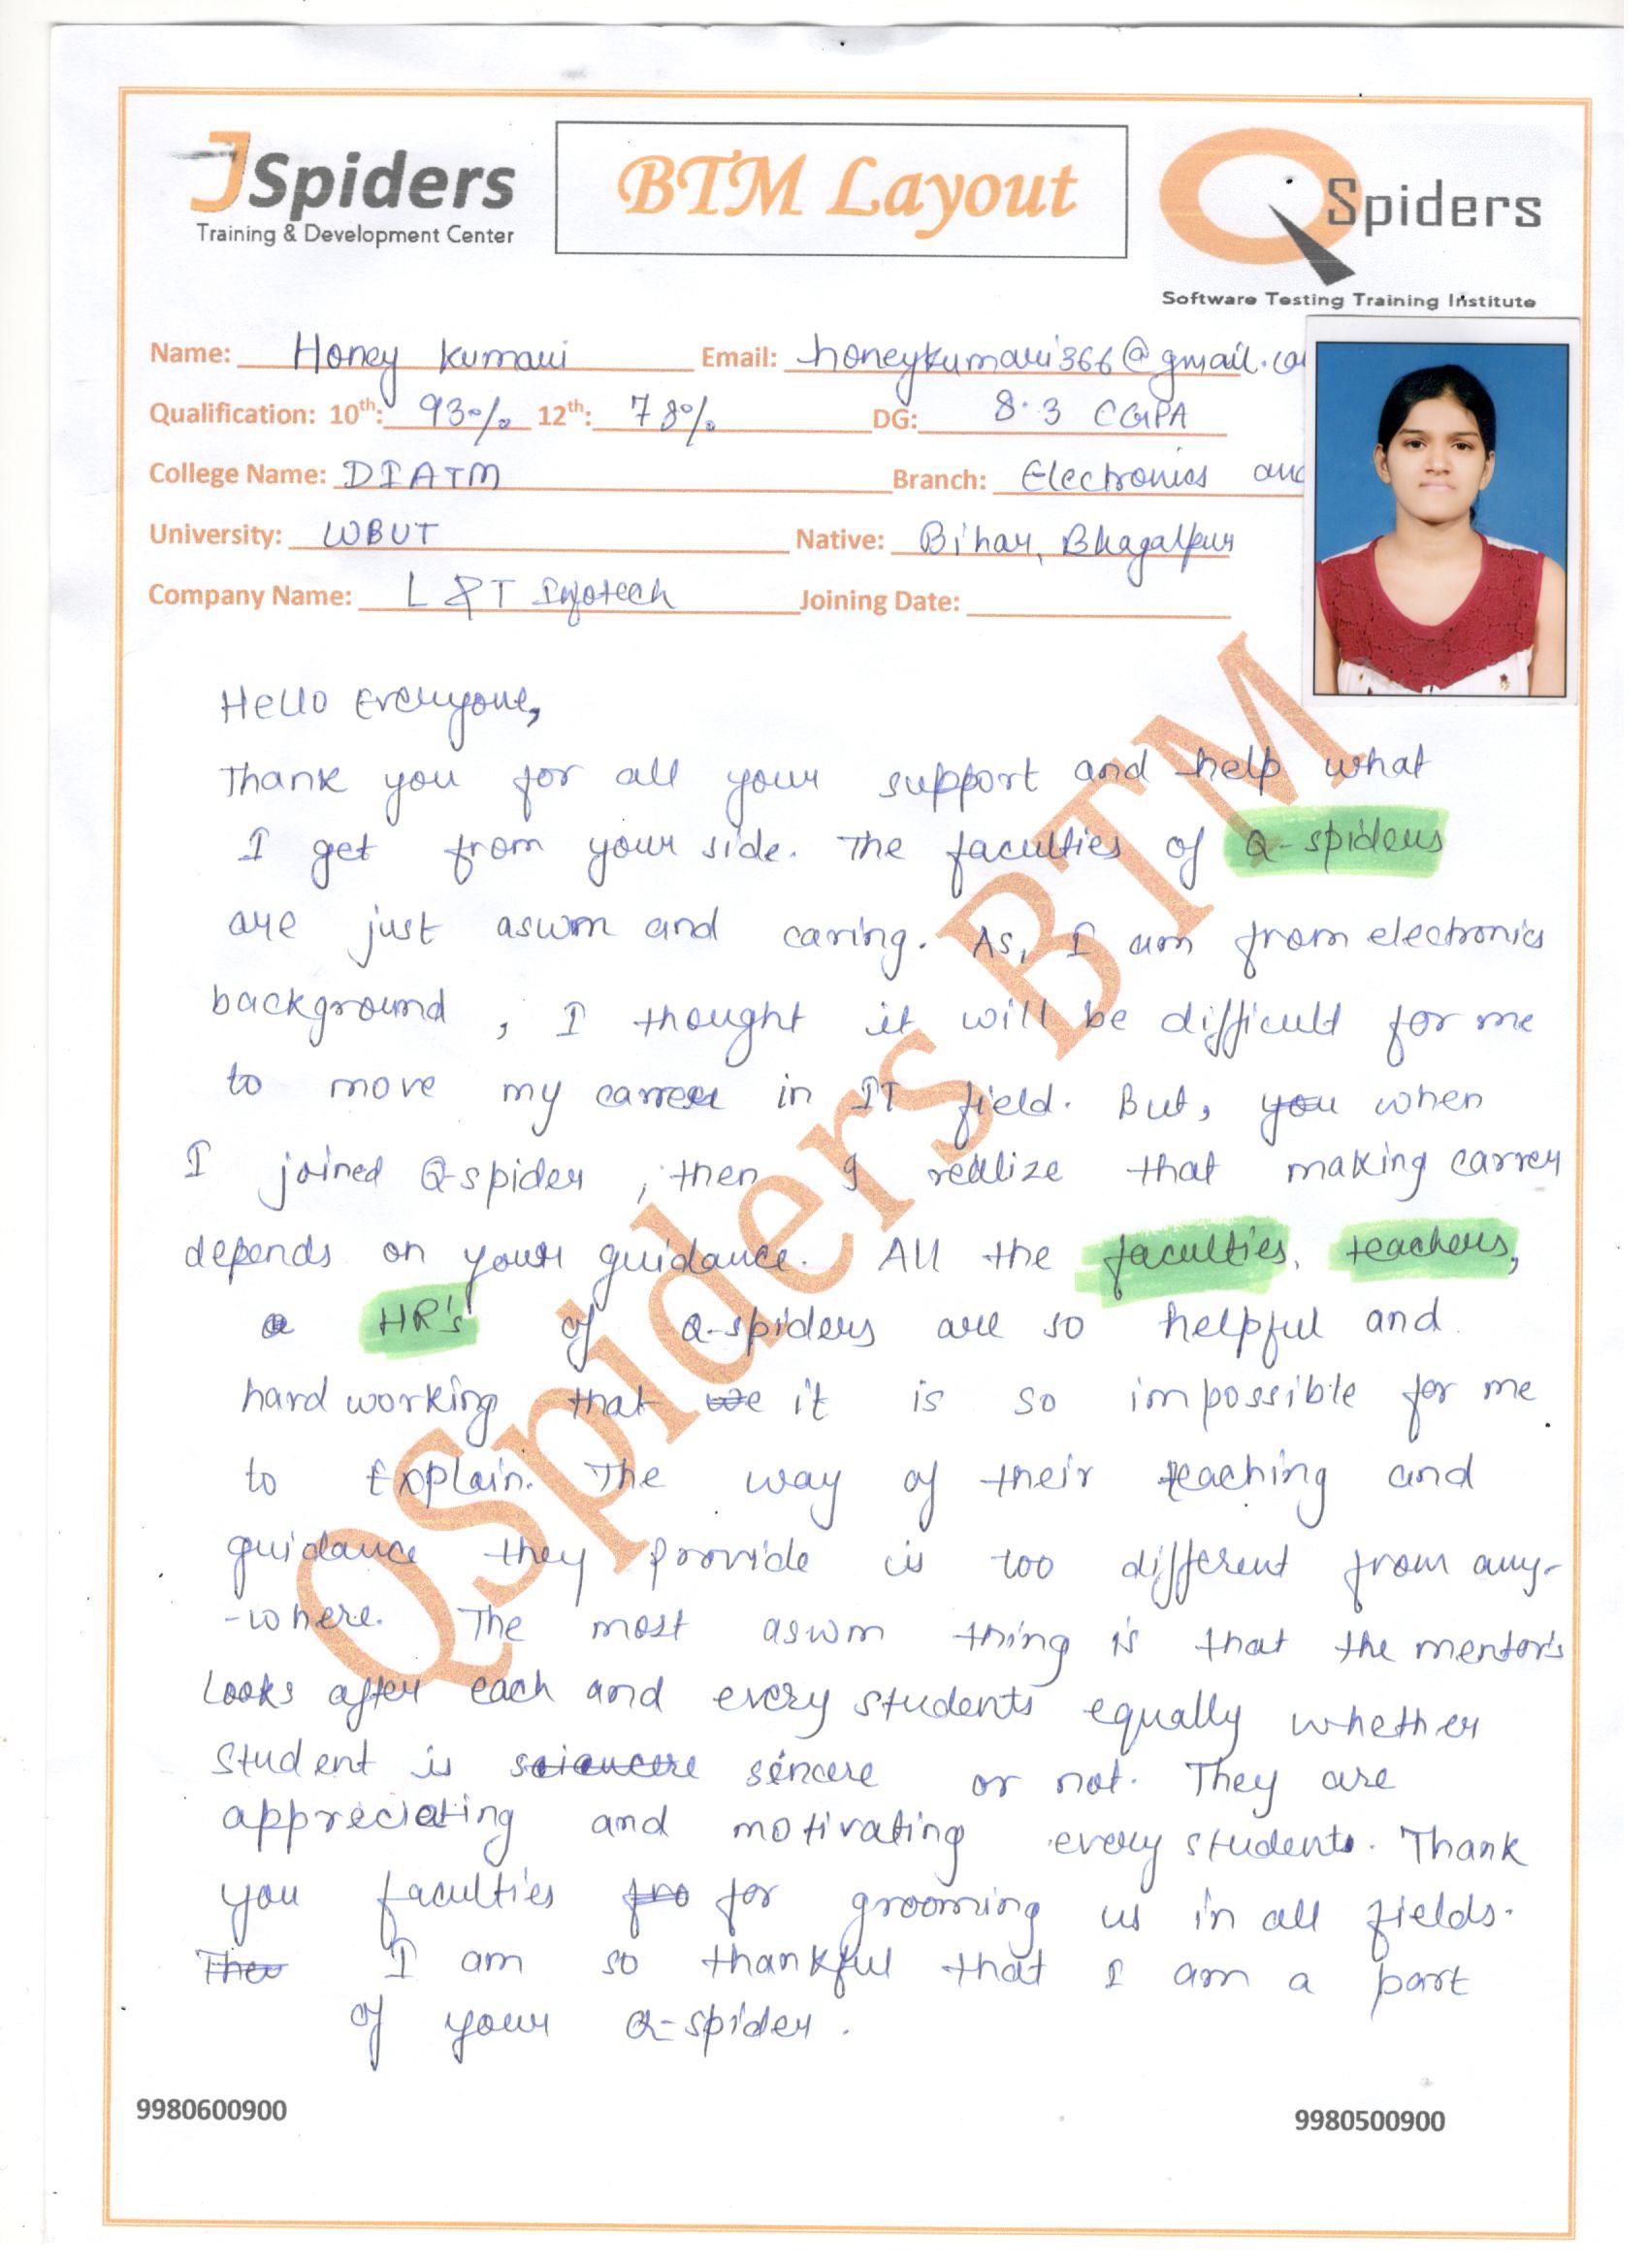 JSpiders
Training & Development Center
BTM Layout
QSpiders
Software Testing Training Institute
Name: Honey Kumari Email: honeykumari366@gmail.co
Qualification: 10th: 93% 12th: 78% DG: 8.3 CGPA
College Name: DIATM Branch: Electronics and
University: WBUT Native: Bihar, Bhagalpur
Company Name: L&T Infotech Joining Date:
Hello Everyone,
Thank you for all your support and help what
I get from your side. The faculties of Q-spiders
are just aswm and caring. As, I am from electronics
background, I thought it will be difficult for me
to move my carreer in IT field. But, you when
I joined Q-spider, then I realize that making carrer
depends on your guidance. All the faculties, teachers,
HR's of Q-spiders are so helpful and
hard working that we it is so impossible for me
to Explain. The way of their teaching and
guidance they provide is too different from any-
-where. The most aswm thing is that the mentor's
Looks after each and every students equally whether
student is sciencere sincere or not. They are
appreciating and motivating every students. Thank
you faculties fro for grooming us in all fields.
The I am so thankful that I am a part
of your Q-spider.
QSpiders BTM
9980600900
9980500900